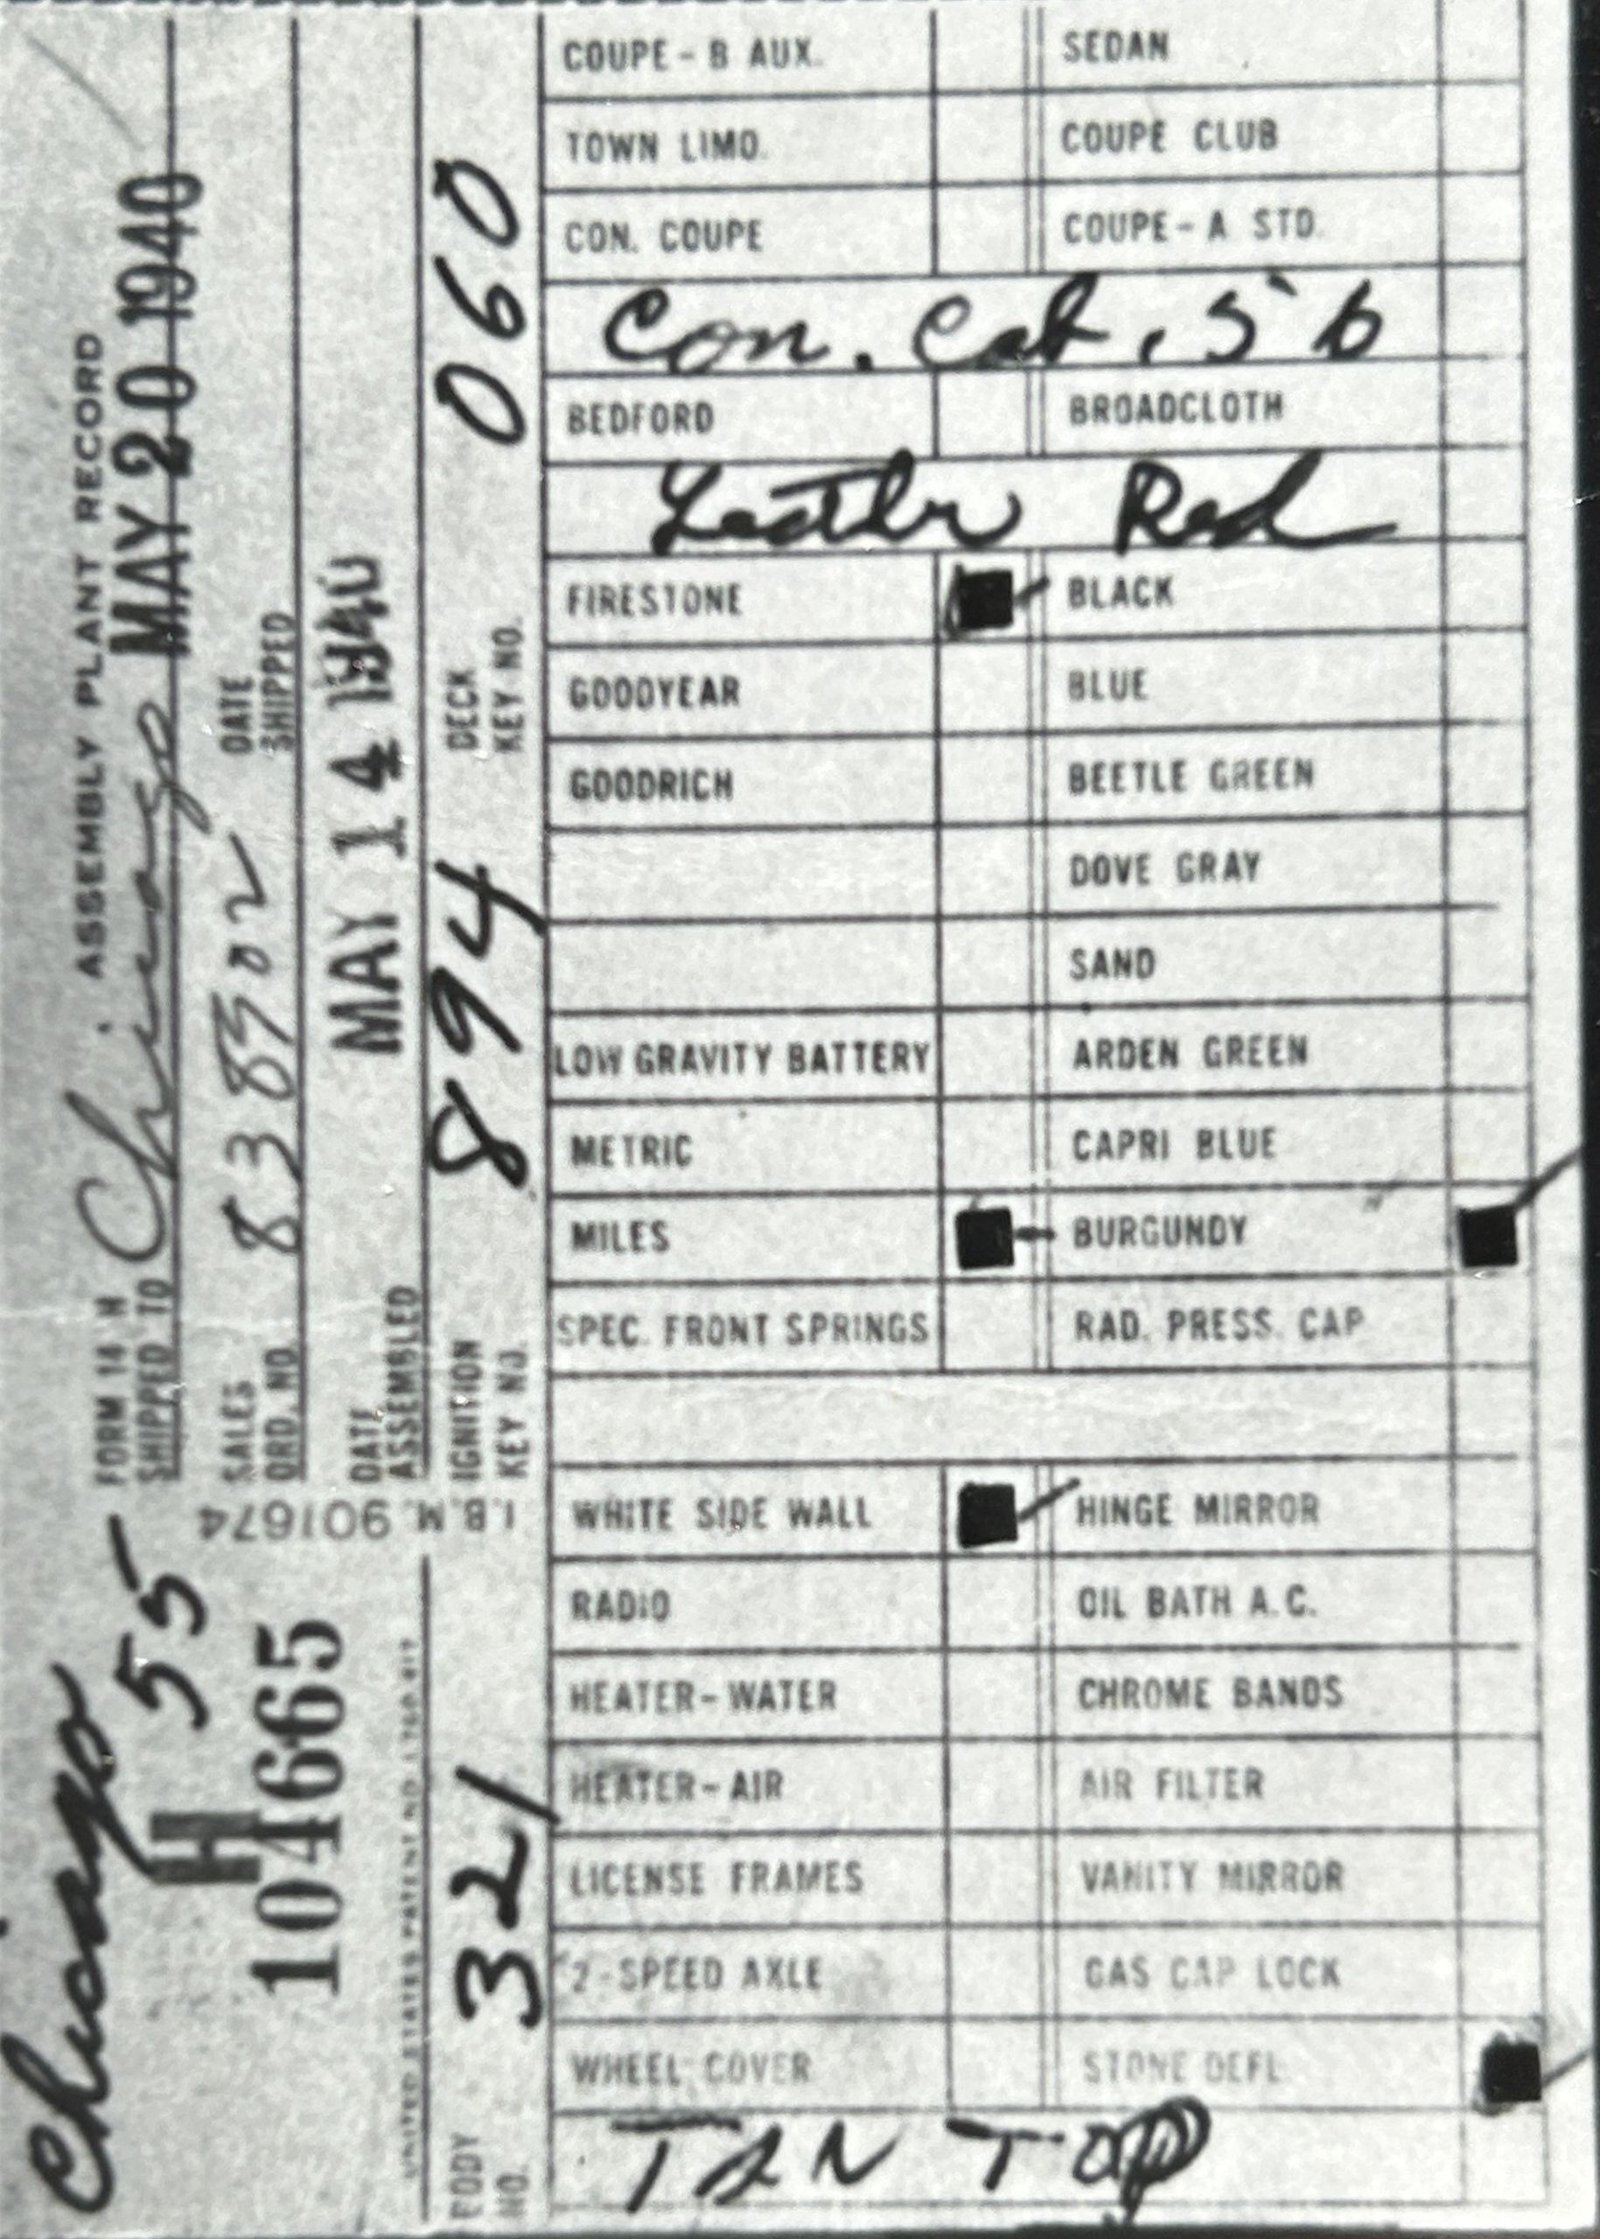 Chicago
H 55
104665
FORM 14 H ASSEMBLY PLANT RECORD
SHIPPED TO Chicago MAY 20 1940
SALES ORD. NO. 838902 DATE SHIPPED
DATE ASSEMBLED MAY 14 1940
IGNITION KEY NO. 894 DECK KEY NO. 060
I.B.M. 901674
BODY NO. 321
COUPE - B AUX. SEDAN
TOWN LIMO. COUPE CLUB
CON. COUPE COUPE - A STD.
Con. Cab. 56
BEDFORD BROADCLOTH
Leather Red
FIRESTONE BLACK
GOODYEAR BLUE
GOODRICH BEETLE GREEN
DOVE GRAY
SAND
LOW GRAVITY BATTERY ARDEN GREEN
METRIC CAPRI BLUE
MILES BURGUNDY
SPEC. FRONT SPRINGS RAD. PRESS. CAP
WHITE SIDE WALL HINGE MIRROR
RADIO OIL BATH A.C.
HEATER - WATER CHROME BANDS
HEATER - AIR AIR FILTER
LICENSE FRAMES VANITY MIRROR
2 - SPEED AXLE GAS CAP LOCK
WHEEL COVER STONE DEFL.
TAN TOP